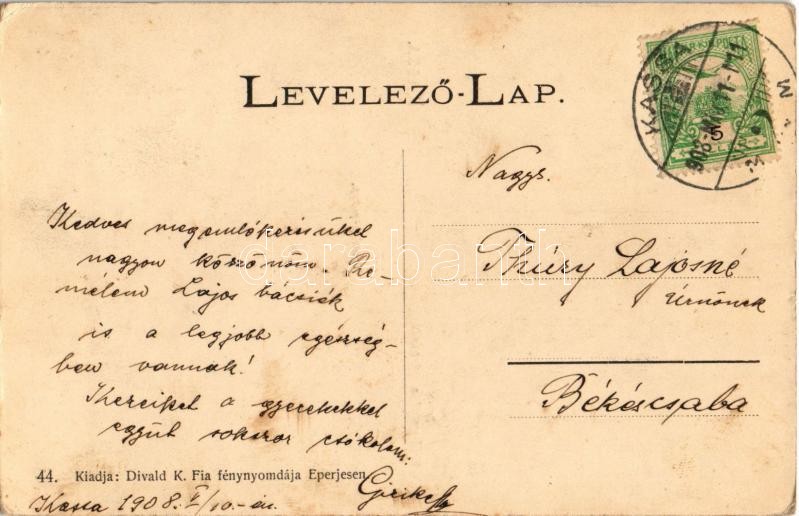 LEVELEZŐ-LAP.
KASSA
5
Nagys.
Thúry Lajosné
Úrnőnek
Békéscsaba
Kedves megemlékezésüket
nagyon köszönöm. Re-
mélem Lajos bácsiék
is a legjobb egészség-
ben vannak!
Kezeiket a gyerekekkel
együt sokszor csókolom:
Kassa 1908. V/10.-én
44. Kiadja: Divald K. Fia fénynyomdája Eperjesen
darabanth